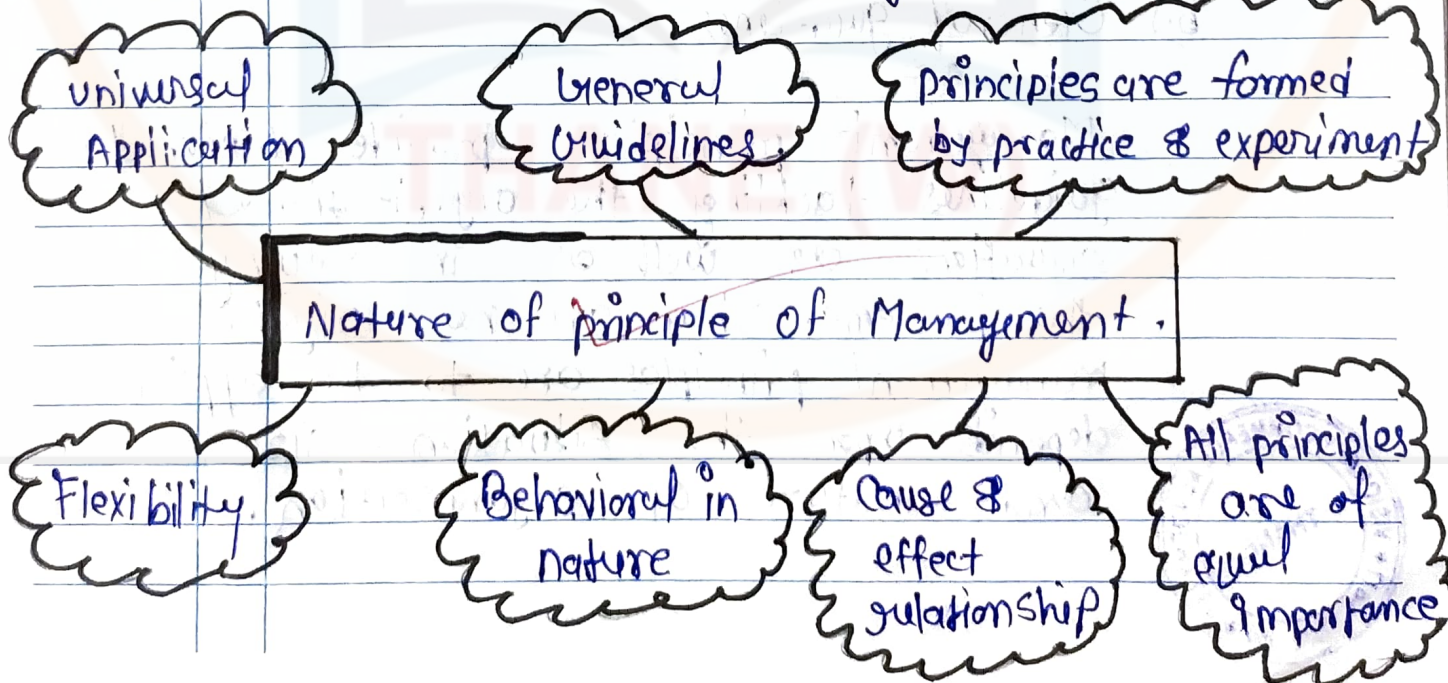 Universal
Application
General
Guidelines.
principles are formed
by practice & experiment
Nature of principle of Management.
Flexibility.
Behavioral in
nature
Cause &
effect
relationship
All principles
are of
equal
importance
THANE (W)